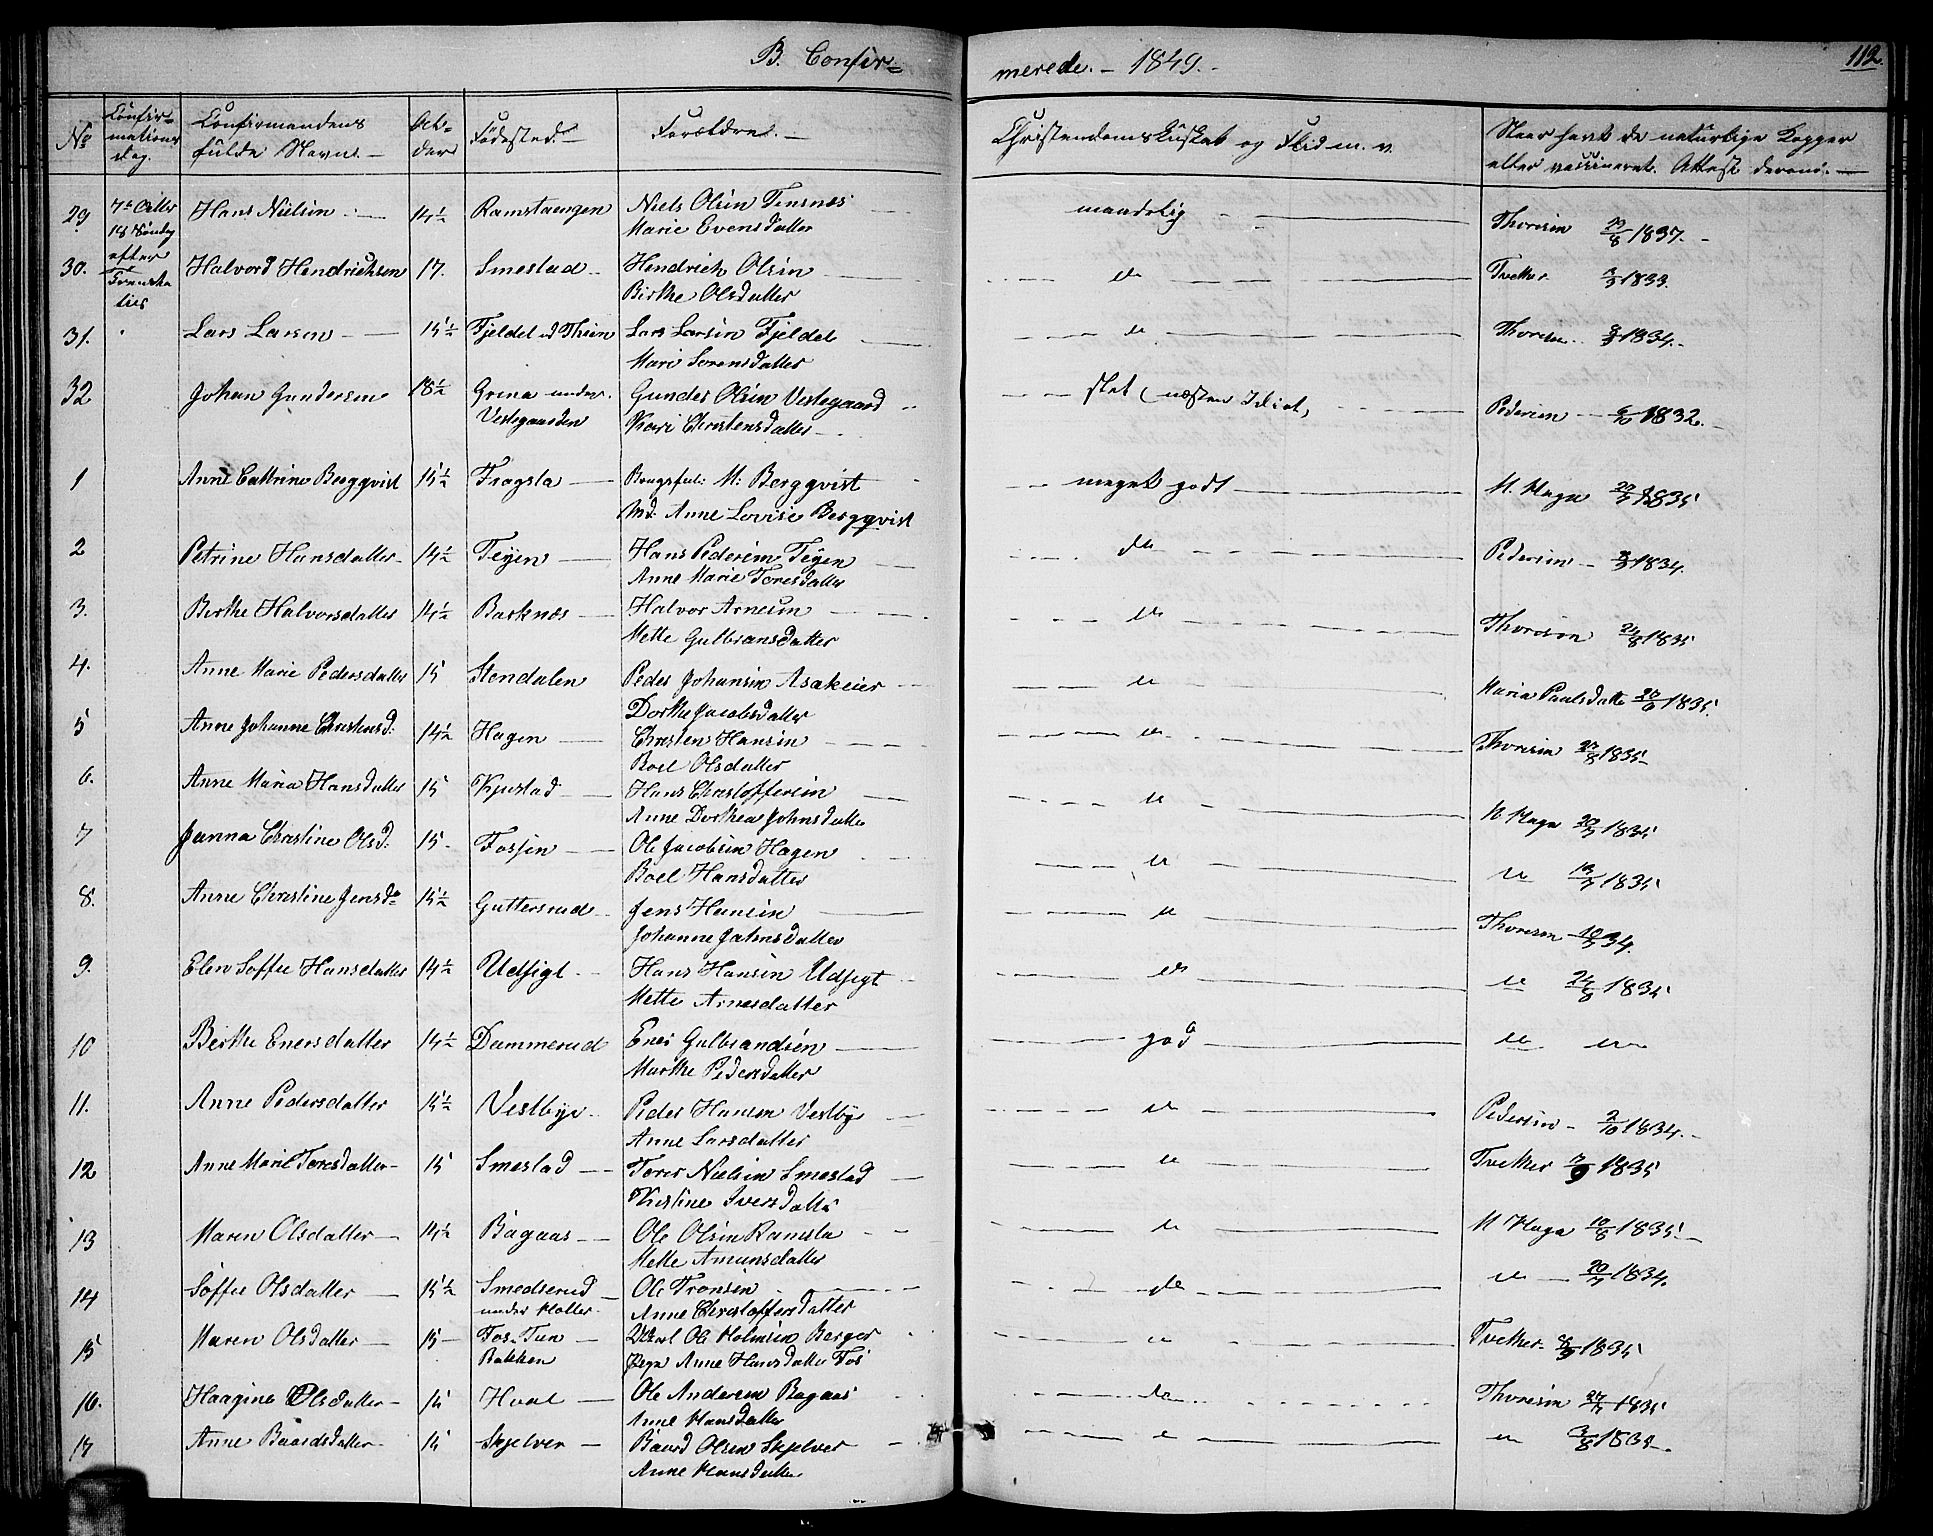 B. Confir=
merede. - 1849. -
112.
No
Confir=
mations
dag.
Confirmandens
fulde Navn. -
Al-
der
Födested. -
Forældre. -
Christendomskundskab og Flid m. v.
Naar havt de naturlige Kopper
eller vaccineret. Attest derom. -
29
Hans Nielsen
14 1/2
Ramstaengen
Niels Olsen
Marie Evensdatter
maadelig
Thoresen 1837. -
18 Söndag
efter
30.
Halvord Hendrichsen
17.
Smestad
Hendrich Olsen
Birthe Olsdatter
do
Tvethe 1833.
31.
Lars Larsen
15 1/2
Fjeldet
Lars Larsen Fjeldet
Mari Sorensdatter
do
Thoresen 1834. -
32
Johan Gundersen
18 1/2
Grina under
Vestegaarden
Gunder Olsen Vestegaard
Kari Christensdatter
slet (næsten Idiot)
Pedersen 1832. -
1
Anne Cathrine Bergqvist
15 1/2
Frogsta
M: Bergqvist
Md: Anne Lovise Bergqvist
meget godt
M. Haga 1835
2
Petrine Hansdatter
14 1/2
Teyen
Hans Pedersen Teyen
Anne Marie Toresdatter
do
Pedersen 1834.
3.
Berthe Halvorsdatter
14 1/2
Barknæs
Halvor Arnesen
Mette Gulbransdatter
do
Thoresen 24/8 1835
4.
Anne Marie Pedersdatter
15
Stendalen
Peder Johansen Asakeier
Dorthe Jacobsdatter
do
Maria Paulsdatter 1835.
5
Anne Johanne Christensd.
14 1/2
Hagen
Christen Hansen
Boel Olsdatter
do
Thoresen 1835 -
6.
Anne Maria Hansdatter
15
Kjustad
Hans Christoffersen
Anne Dorthea Johnsdatter
do
M. Haga 1835
7
Janna Christine Olsd.
15.
Fossen
Ole Jacobsen Hagen
Boel Hansdatter
do
do 1835
8.
Anne Christine Jensd.
15 1/2
Guttersrud
Jens Hansen
Johanne Jahnsdatter
do
Thoresen 34.
9.
Elen Soffie Hansdatter
14 1/2
Udsigt
Hans Hansen Udsigt
Mette Arnesdatter
do
do 24/8 1835
10
Berthe Enersdatter
14 1/2
Dammerud
Ener Gulbrandsen
Marthe Pedersdatter
god
do do
11.
Anne Pedersdatter
15 1/2
Vestbye
Peder Hansen Vestby
Anne Larsdatter
do
Pedersen 2/10 1834. -
12
Anne Marie Toresdatter
15
Smestad
Tores Nielsen Smestad
Kirstine Iversdatter
do
Tvether 1835
13
Maren Olsdatter
14 1/2
Bagaas
Ole Olsen Ramsta
Mette Amunsdatter
do
M Haga 1835. -
14
Soffie Olsdatter
15 1/2
Smedserud
under Holter
Ole Tronsen
Anne Christoffersdatter
do
do 1834.
15
Maren Olsdatter
15
Fos-Tun
Bakken
Ole Holmsen Berger
Pige Anne Hansdatter Fos
do
Tvether 1835
16.
Haagine Olsdatter
15
Hval
Ole Andersen Bagaas
Anne Hansdatter
do
Thoresen 1835
17
Anne Baardsdatter
15
Skjelver
Baard Olsen Skjelver
Anne Hansdatter
do
do 1835.